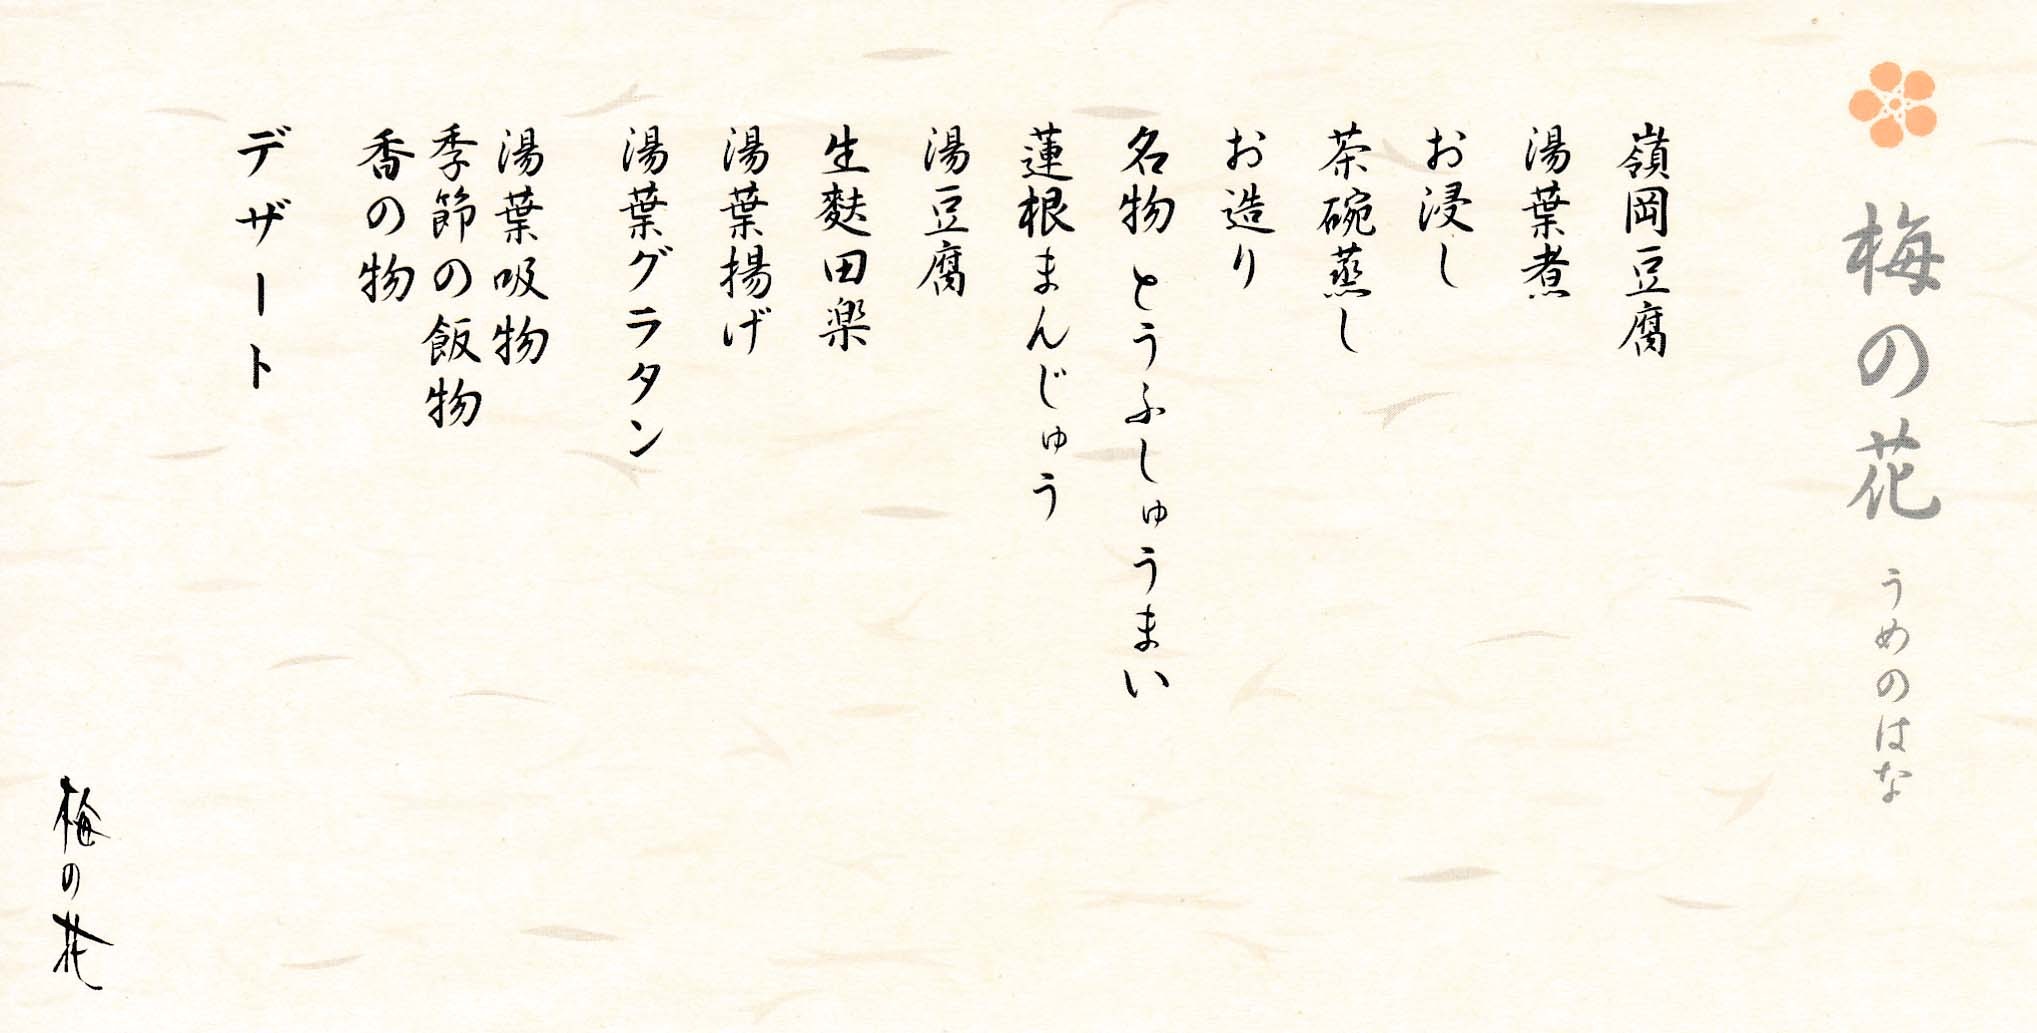 梅の花 うめのはな
嶺岡豆腐
湯葉煮
お浸し
茶碗蒸し
お造り
名物 とうふしゅうまい
蓮根まんじゅう
湯豆腐
生麩田楽
湯葉揚げ
湯葉グラタン
湯葉吸物
季節の飯物
香の物
デザート
梅の花